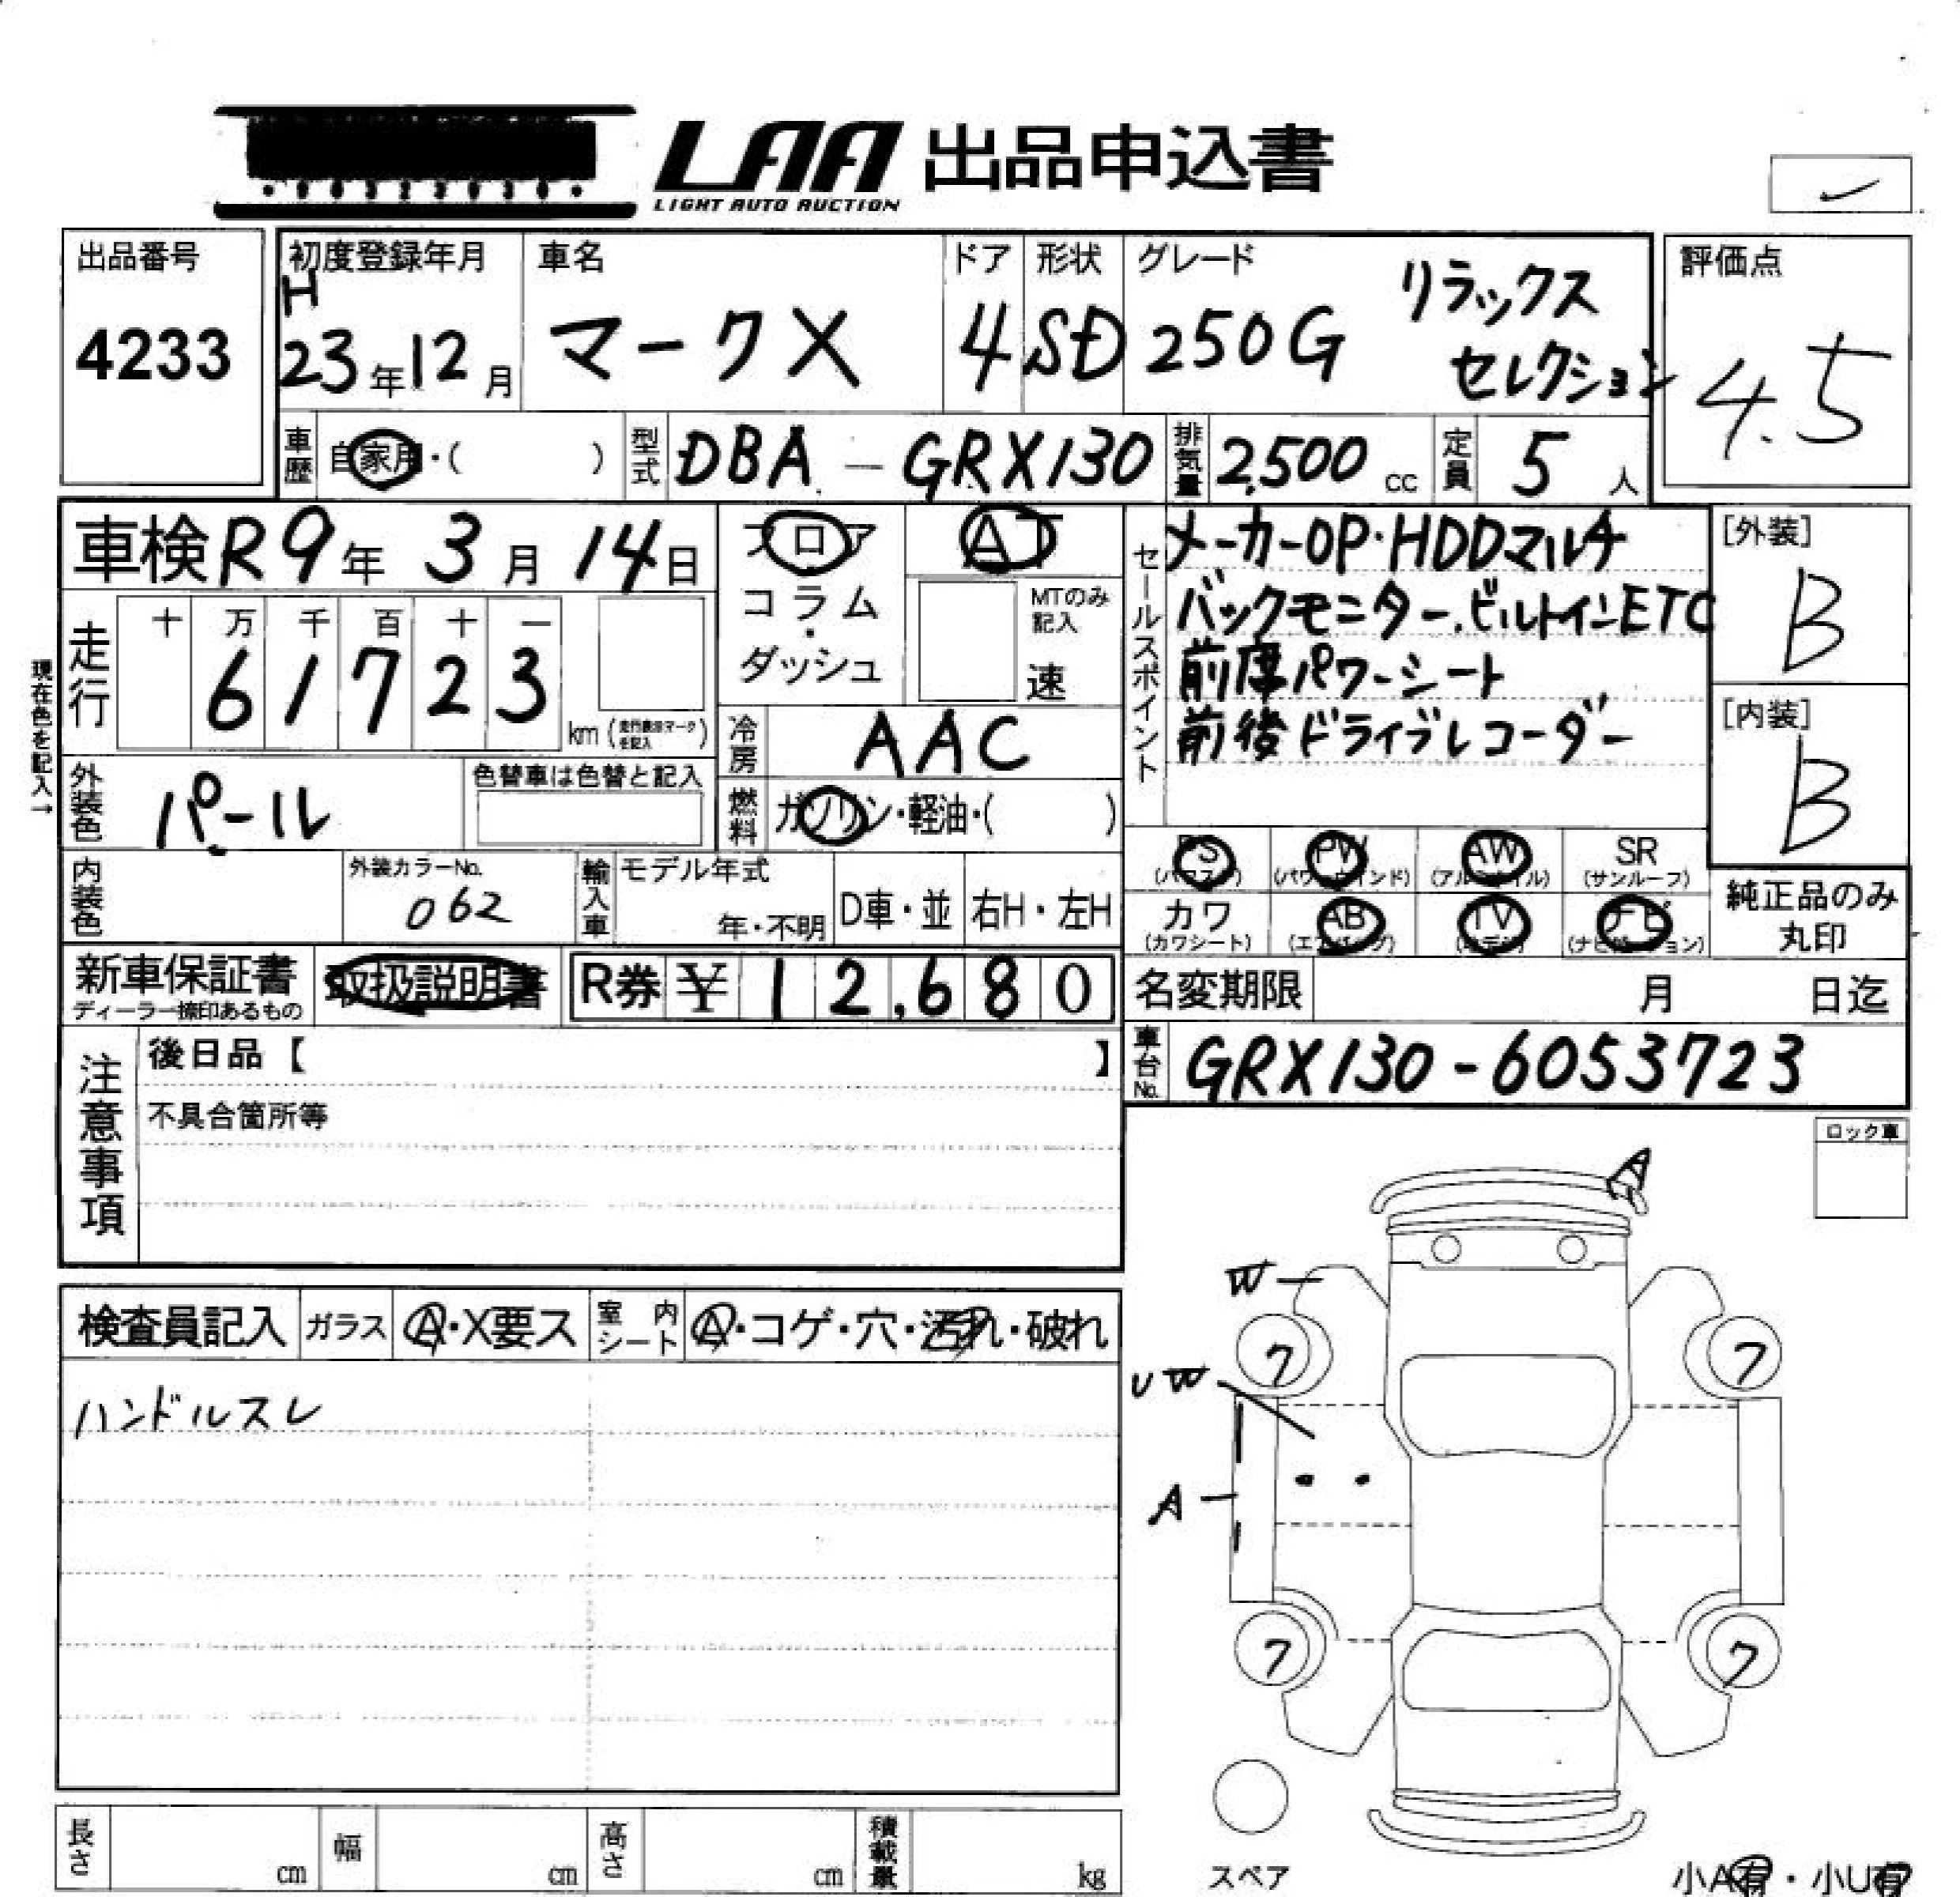 LAA 出品申込書
LIGHT AUTO AUCTION
出品番号
4233
初度登録年月
H
23年12月
車名
マークX
ドア
4
形状
SD
グレード
250G
リラックス
セレクション
評価点
4.5
車歴
自家用・( )
型式
DBA-GRX130
排気量
2,500cc
定員
5人
車検R9年3月14日
フロア
コラム
・
ダッシュ
AT
MTのみ
記入
速
走行
十 万 千 百 十 一
6 1 7 2 3
km(走行表示マークを記入)
現在色を記入→
冷房
AAC
燃料
ガソリン・軽油・( )
外装色
パール
色替車は色替と記入
内装色
外装カラーNo.
062
輸入車
モデル年式
年・不明
D車・並
右H・左H
セールスポイント
メーカーOP・HDDマルチ
バックモニター、ビルトインETC
前席パワーシート
前後ドライブレコーダー
[外装]
B
[内装]
B
PS
(パワステ)
PW
(パワーウインド)
AW
(アルミホイル)
SR
(サンルーフ)
カワ
(カワシート)
AB
(エアバッグ)
TV
ナビ
(ナビゲーション)
純正品のみ
丸印
新車保証書
ディーラー捺印あるもの
取扱説明書
R券 ¥ 12,680
名変期限 月 日迄
車台No.
GRX130-6053723
注意事項
後日品【 】
不具合箇所等
ロック車
検査員記入
ガラス
A・X要ス
室内シート
A・コゲ・穴・汚れ・破れ
ハンドルスレ
A
W
7
7
UW
A
7
7
スペア
長さ
cm
幅
cm
高さ
cm
積載量
kg
小A有・小U有